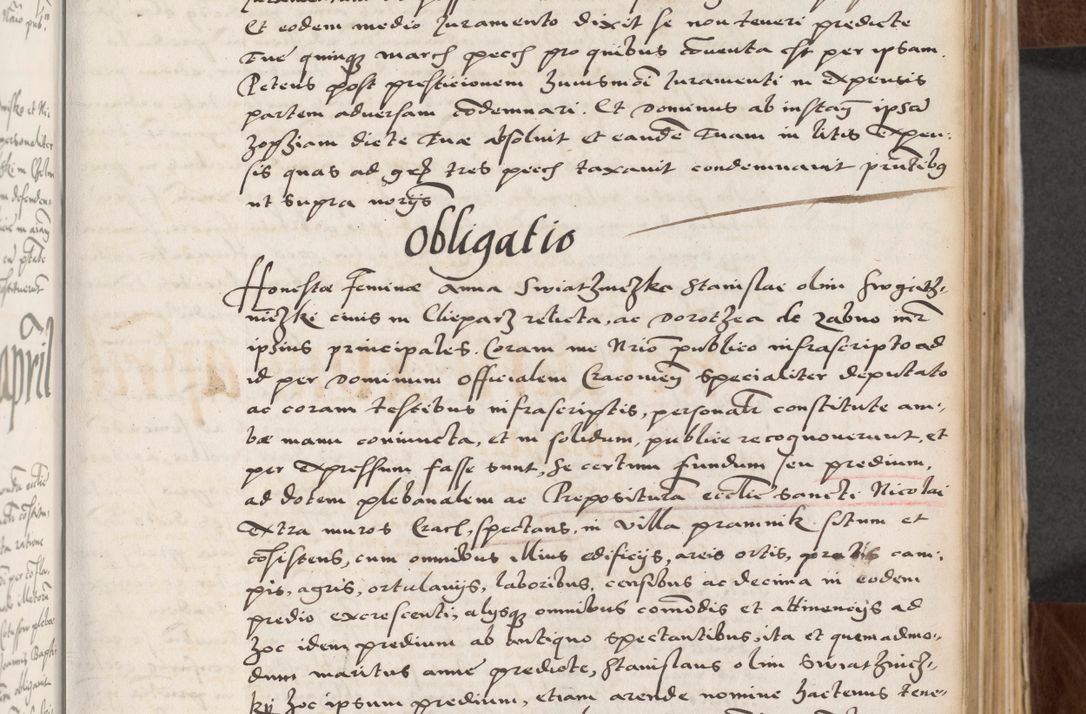 Et eodem medio Juramento dixit se non teneri predicte
Tue quinque march pecch pro quibus conventa est per ipsam.
Petens post prestitionem huiusmoi Juramenti in expensis
partem adversam condemnari. Et Dominus ab instan ipsam
Zophiam dicte Tue absoluit et eandem Tuam in litis Expen:
sis quas ad gr tres pecch taxavit condemnavit pntibus
ut supra norijs
Obligatio
Honestæ Feminæ Anna Swiathniczka Stanislai olim Swyath:
niczki civis in Clieparz relicta, ac Dorothea de Zabno mr
ipsius principales. Coram me Nrio publico infrascripto ad
id per Dominum Officialem Cracovien Specialiter deputato
ac coram testibus infrascriptis, personalr constitute am:
bæ manu coniuncta, et in solidum, publice recognoverunt, et
per Expressum fasse sunt, se certum fundum seu predium,
ad dotem plebanalem ac Prepositura ecclie sancti Nicolai
Extra muros Crach, spectans, in villa pramnik situm et
cosistens, cum omnibus illius edificijs, areis ortis, pratis cam:
pis, agris, ortulanijs, laboribus, censibus ac decima in eodem
predio excrescenti, alijsque omnibus comodis et attinencijs ad
hoc idem predium ab antiquo spectantibus, ita et quemadmo:
dum maritus anne predicte, Stanislaus olim Swiathnicz:
ky hoc ipsum predium, etiam arende nomine hactenus tene: